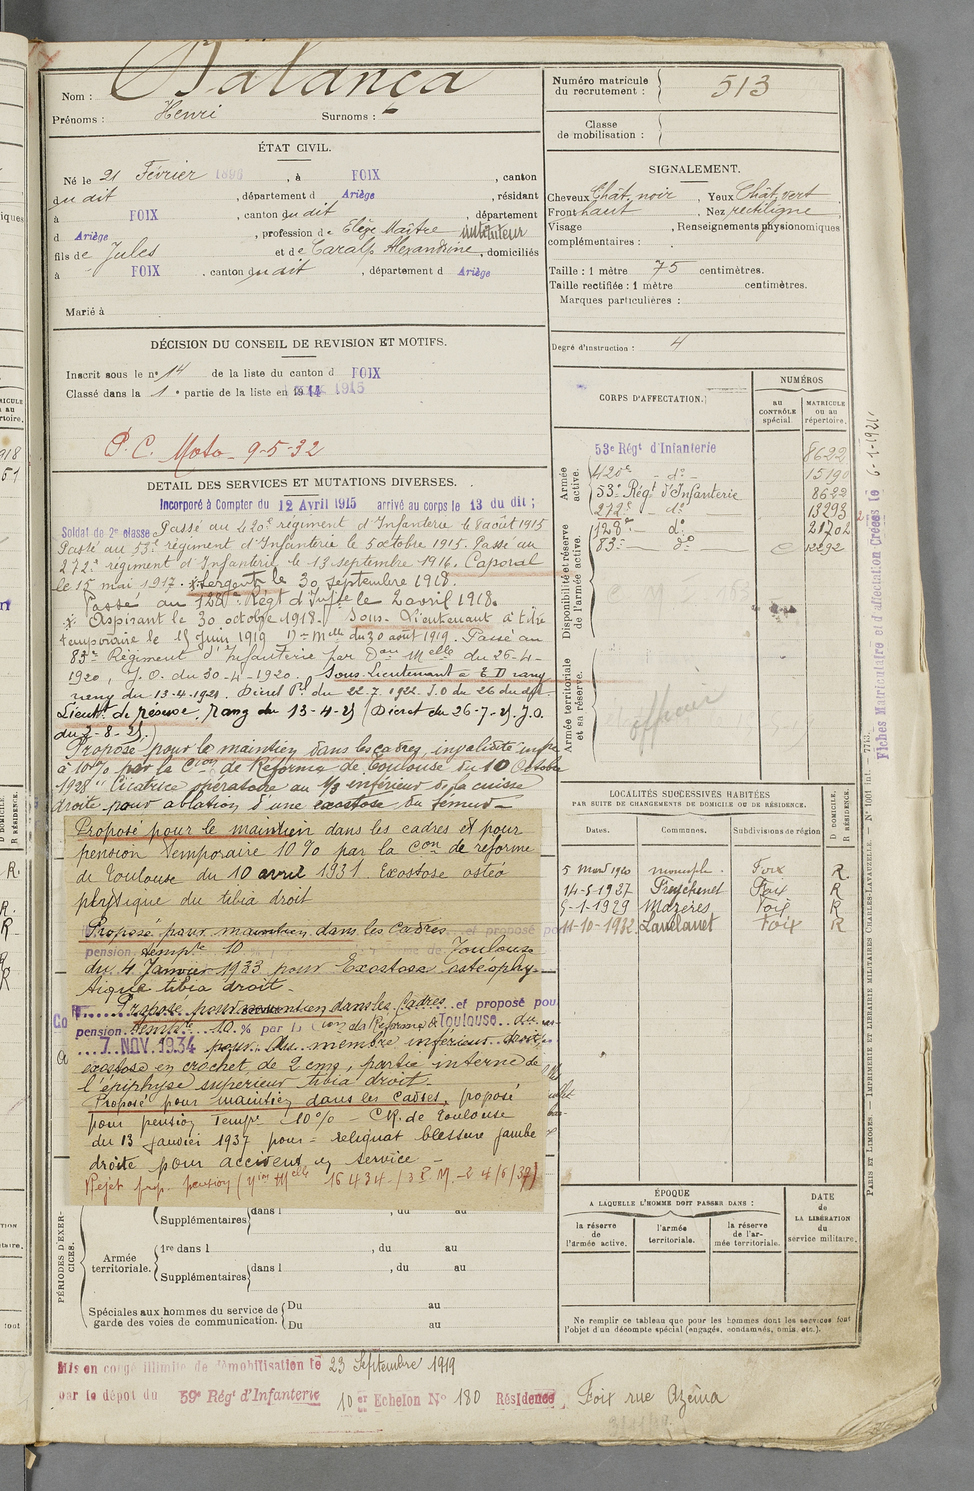 Nom : Balança
Prénoms : Henri Surnoms : -
ÉTAT CIVIL.
Né le 21 Février 1896, à FOIX, canton
du dit, département d Ariège, résidant
à FOIX, canton du dit, département
d Ariège, profession de Elève Maître instituteur
fils de Jules et de Caralp Alexandrine, domiciliés
à FOIX, canton du dit, département d Ariège
Marié à
DÉCISION DU CONSEIL DE REVISION ET MOTIFS.
Inscrit sous le n° 14 de la liste du canton d FOIX
Classé dans la 1e partie de la liste en 1915
P.C. Moto - 9-5-32
DETAIL DES SERVICES ET MUTATIONS DIVERSES.
Incorporé à Compter du 12 Avril 1915 arrivé au corps le 13 du dit ;
Soldat de 2e classe Passé au 420e régiment d'Infanterie le 8 août 1915
Passé au 53e régiment d'Infanterie le 5 octobre 1915. Passé au
272e régiment d'Infanterie le 13 septembre 1916. Caporal
le 15 mai 1917. * Sergent le 30 septembre 1918.
Passé au 128e Régt d'Inftie le 2 avril 1918.
* Aspirant le 30 octobre 1918. Sous-Lieutenant à titre
temporaire le 15 Juin 1919 Don Melle du 30 août 1919. Passé au
83e Régiment d'Infanterie par Don Melle du 26-4-
1920, J.O. du 30-4-1920. Sous-Lieutenant à T.D rang
rang du 13-4-1921. Décret Pl. du 22-7-1922. J.O du 26 du dit.
Lieutt de réserve, rang du 13-4-25 (Décret du 26-7-25. J.O.
du 2-8-25.)
Proposé pour le maintien dans les cadres, invalidité infre
à 10% par la Con de Réforme de Toulouse du 10 Octobre
1928 "Cicatrice opératoire au 1/3 inférieur de la cuisse
droite pour ablation d'une exostose du fémur -
Proposé pour le maintien dans les cadres et pour
pension temporaire 10% par la Con de réforme
de Toulouse du 10 avril 1931. Exostose ostéo
phytique du tibia droit
Proposé pour maintien dans les cadres et proposé po
pension tempre 10 de Toulouse
du 4 Janvier 1933 pour Exostose ostéophy-
tique tibia droit -
Proposé pour maintien dans les Cadres et proposé pour
pension tempre 10 % par la Con de Réforme de Toulouse du
7 NOV. 1934 pour membre inférieur droit,
exostose en crochet, de 2 cms, partie interne de
l'épiphyse supérieur tibia droit -
Proposé pour maintien dans les cadres, proposé
pour pension Tempre 10% - C.R. de Toulouse
du 13 janvier 1937 pour = reliquat blessure jambe
droite pour accident en service -
Rejet prop. pension
PÉRIODES D'EXERCICES.
Supplémentaires dans l , du au
Armée territoriale.
1re dans l , du au
Supplémentaires dans l , du au
Spéciales aux hommes du service de garde des voies de communication.
Du au
Du au
Mis en congé illimité de démobilisation le 23 Septembre 1919
par le dépôt du 59e Régt d'Infanterie 10er Echelon No 180 Résidence, Foix rue Azéma
Numéro matricule du recrutement : 513
Classe de mobilisation :
SIGNALEMENT.
Cheveux Chât. noir, Yeux Chât. vert
Front haut, Nez rectiligne
Visage , Renseignements physionomiques
complémentaires :
Taille : 1 mètre 75 centimètres.
Taille rectifiée : 1 mètre centimètres.
Marques particulières :
Degré d'instruction : 4
CORPS D'AFFECTATION.
NUMÉROS
AU CONTRÔLE spécial.
MATRICULE ou au répertoire.
Armée active.
53e Régt d'Infanterie 8622
420e - do - 15190
53e Régt d'Infanterie 8622
272e - do 13293
Disponibilité et réserve de l'armée active.
128e - do 21702
83e - do 12292
Armée territoriale et sa réserve.
officier
LOCALITÉS SUCCESSIVES HABITÉES
PAR SUITE DE CHANGEMENTS DE DOMICILE OU DE RÉSIDENCE.
Dates. Communes. Subdivisions de région D DOMICILE. R RÉSIDENCE.
5 mars 1920 Foix R.
14-5-1927 Foix R
5-1-1929 Mazères Foix R
11-10-1932 Lavelanet Foix R
ÉPOQUE
A LAQUELLE L'HOMME DOIT PASSER DANS :
la réserve de l'armée active.
l'armée territoriale.
la réserve de l'armée territoriale.
DATE de LA LIBÉRATION du service militaire.
Ne remplir ce tableau que pour les hommes dont les services font
l'objet d'un décompte spécial (engagés, condamnés, omis, etc.).
Fiches Matriculaire et d'affectation Créées le 6-1-1921
PARIS ET LIMOGES. — IMPRIMERIE ET LIBRAIRIE MILITAIRES CHARLES-LAVAUZELLE. — N° 1001 Int. — 7713.